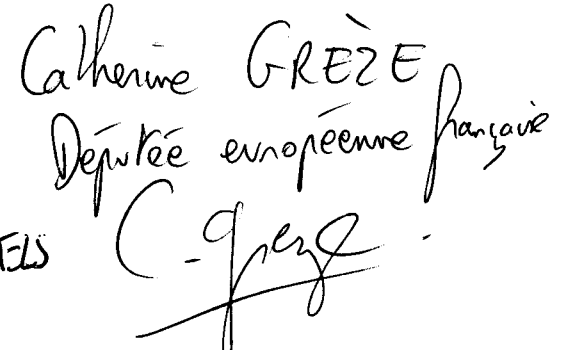 Catherine GRÈZE
Députée européenne française
C. Grèze